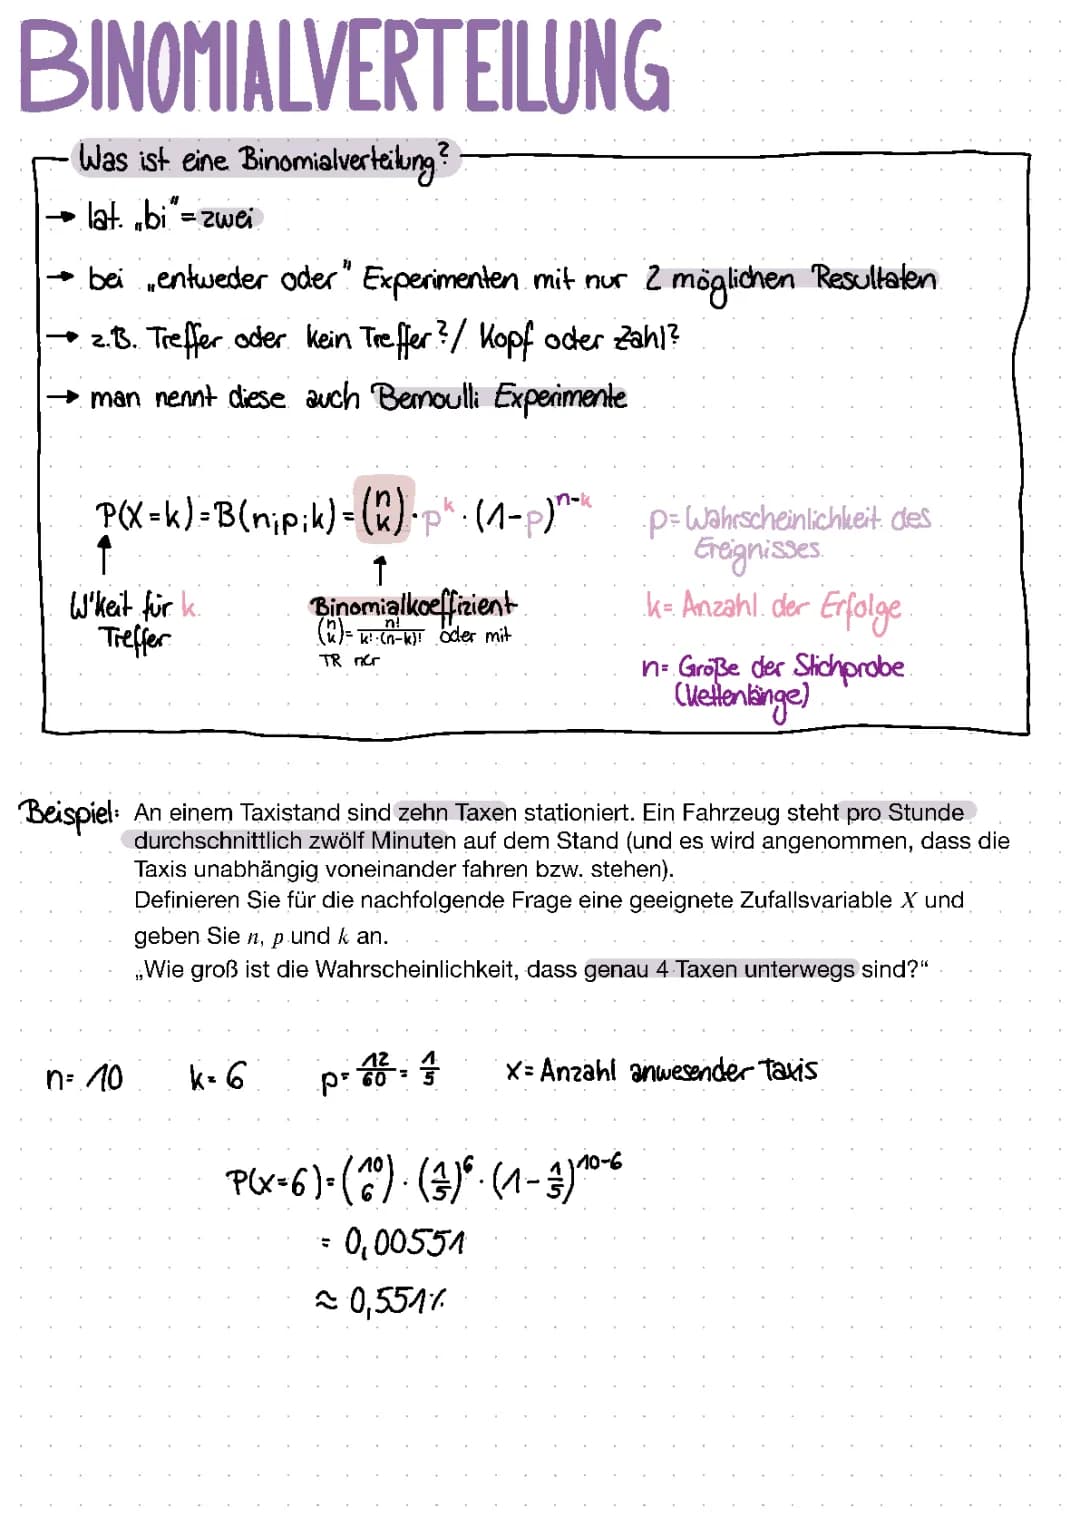 BINOMIALVERTEILUNG
Was ist eine Binomialverteilung?
→ lat. „bi" = zwei
→ bei „entweder oder" Experimenten mit nur 2 möglichen Resultaten
→ z.B. Treffer oder kein Treffer? / Kopf oder Zahl?
→ man nennt diese auch Bernoulli Experimente
P(X=k) = B(n;p;k) = (n k) · p^k · (1-p)^n-k
p = Wahrscheinlichkeit des
Ereignisses
W'keit für k
Treffer
Binomialkoeffizient
(n k) = n! / k!·(n-k)! oder mit
TR nCr
k = Anzahl der Erfolge
n = Größe der Stichprobe
(Kettenlänge)
Beispiel: An einem Taxistand sind zehn Taxen stationiert. Ein Fahrzeug steht pro Stunde
durchschnittlich zwölf Minuten auf dem Stand (und es wird angenommen, dass die
Taxis unabhängig voneinander fahren bzw. stehen).
Definieren Sie für die nachfolgende Frage eine geeignete Zufallsvariable X und
geben Sie n, p und k an.
„Wie groß ist die Wahrscheinlichkeit, dass genau 4 Taxen unterwegs sind?“
n = 10 k = 6 p = 12/60 = 1/5 X = Anzahl anwesender Taxis
P(X=6) = (10 6) · (1/5)^6 · (1-1/5)^10-6
= 0,00551
≈ 0,551%